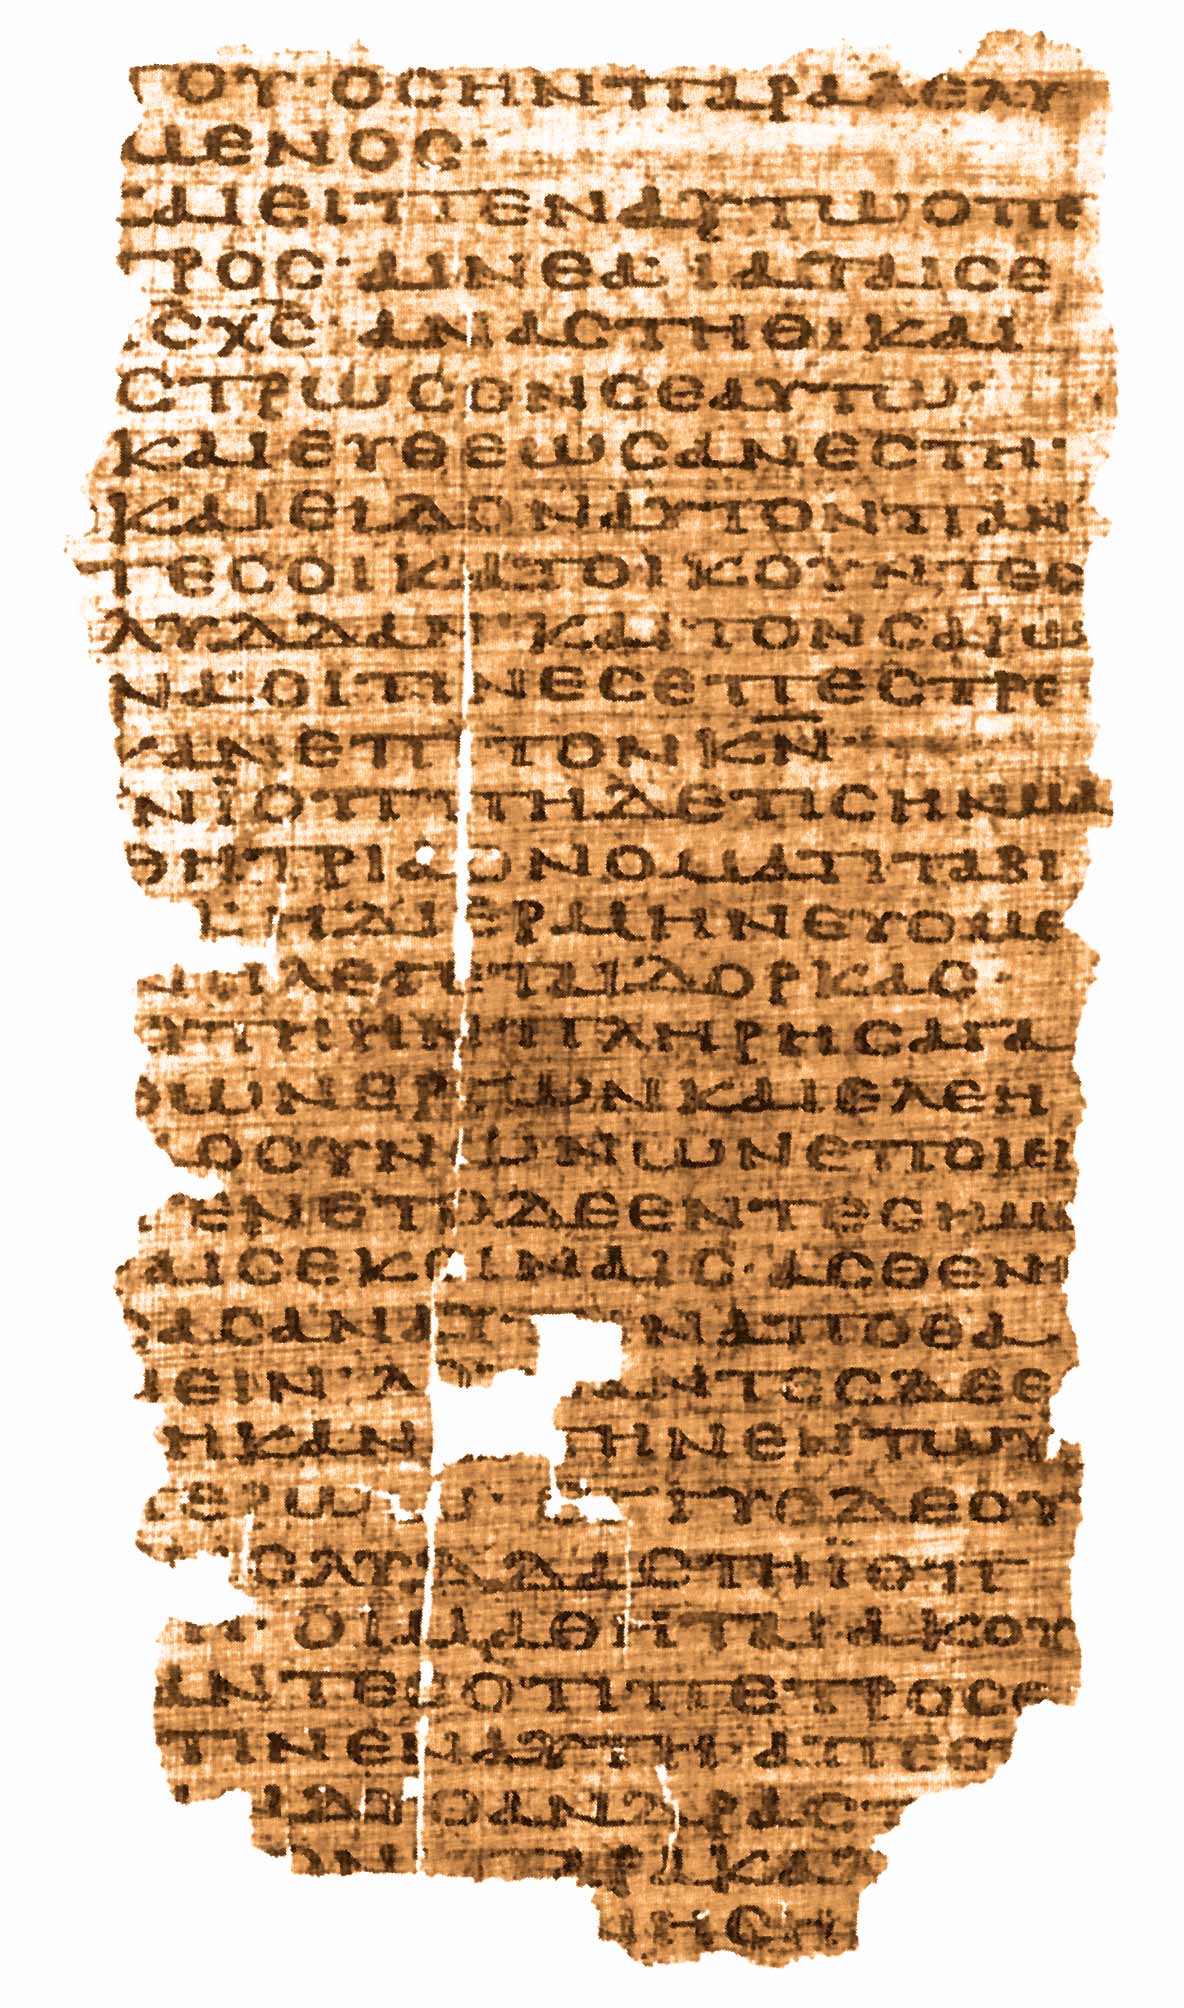 ΤΟΥ·ΟCΗΝΠΑΡΑΛΕΛΥ
ΜΕΝΟC·
ΚΑΙΕΙΠΕΝΑΥΤΩΟΠΕ
ΤΡΟC·ΑΙΝΕΑ·ΙΑΤΑΙCΕ
ΙC̅ΧC̅·ΑΝΑCΤΗΘΙΚΑΙ
CΤΡΩCΟΝCΕΑΥΤΩ·
ΚΑΙΕΥΘΕΩCΑΝΕCΤΗ·
ΚΑΙΕΙΔΟΝΑΥΤΟΝΠΑΝ
ΤΕCΟΙΚΑΤΟΙΚΟΥΝΤΕC
ΛΥΔΔΑΝ ΚΑΙΤΟΝCΑΡΩ
ΝΑ·ΟΙΤΙΝΕCΕΠΕCΤΡΕ
ΨΑΝΕΠΙΤΟΝΚΝ̅·
ΝΪΟΠΠΗΔΕΤΙCΗΝΜΑ
ΘΗΤΡΙΑΟΝΟΜΑΤΙΤΑΒΙ
ΗΔΙΕΡΜΗΝΕΥΟΜΕ
ΝΗΛΕΓΕΤΑΙΔΟΡΚΑC·
ΑΥΤΗΗΝΠΛΗΡΗCΑΓΑ
ΘΩΝΕΡΓΩΝΚΑΙΕΛΕΗ
ΟCΥΝΩΝΩΝΕΠΟΙΕΙ
ΓΕΝΕΤΟΔΕΕΝΤΕCΗΜΕ
ΑΙCΕΚΕΙΝΑΙC·ΑCΘΕΝΗ
CΑCΑΝΑΥΤ ΝΑΠΟΘΑ
ΝΕΙΝ·ΛΟ ΑΝΤΕCΔΕΕ
ΗΚΑΝ ΤΗΝΕΝΤΩΥ
ΠΕΡΩ ΓΓΥCΔΕΟΥ
CΛΥΔΔΑCΤΗΪΟΠΠ
Η·ΟΙΜΑΘΗΤΑΙΑΚΟΥ
ΑΝΤΕCΟΤΙΠΕΤΡΟCΕ
ΤΙΝΕΝΑΥΤΗ·ΑΠΕC
ΔΥΟΑΝΔΡΑC
ΟΝ ΠΑΡΑΚΑΛ
ΝΗCΗ